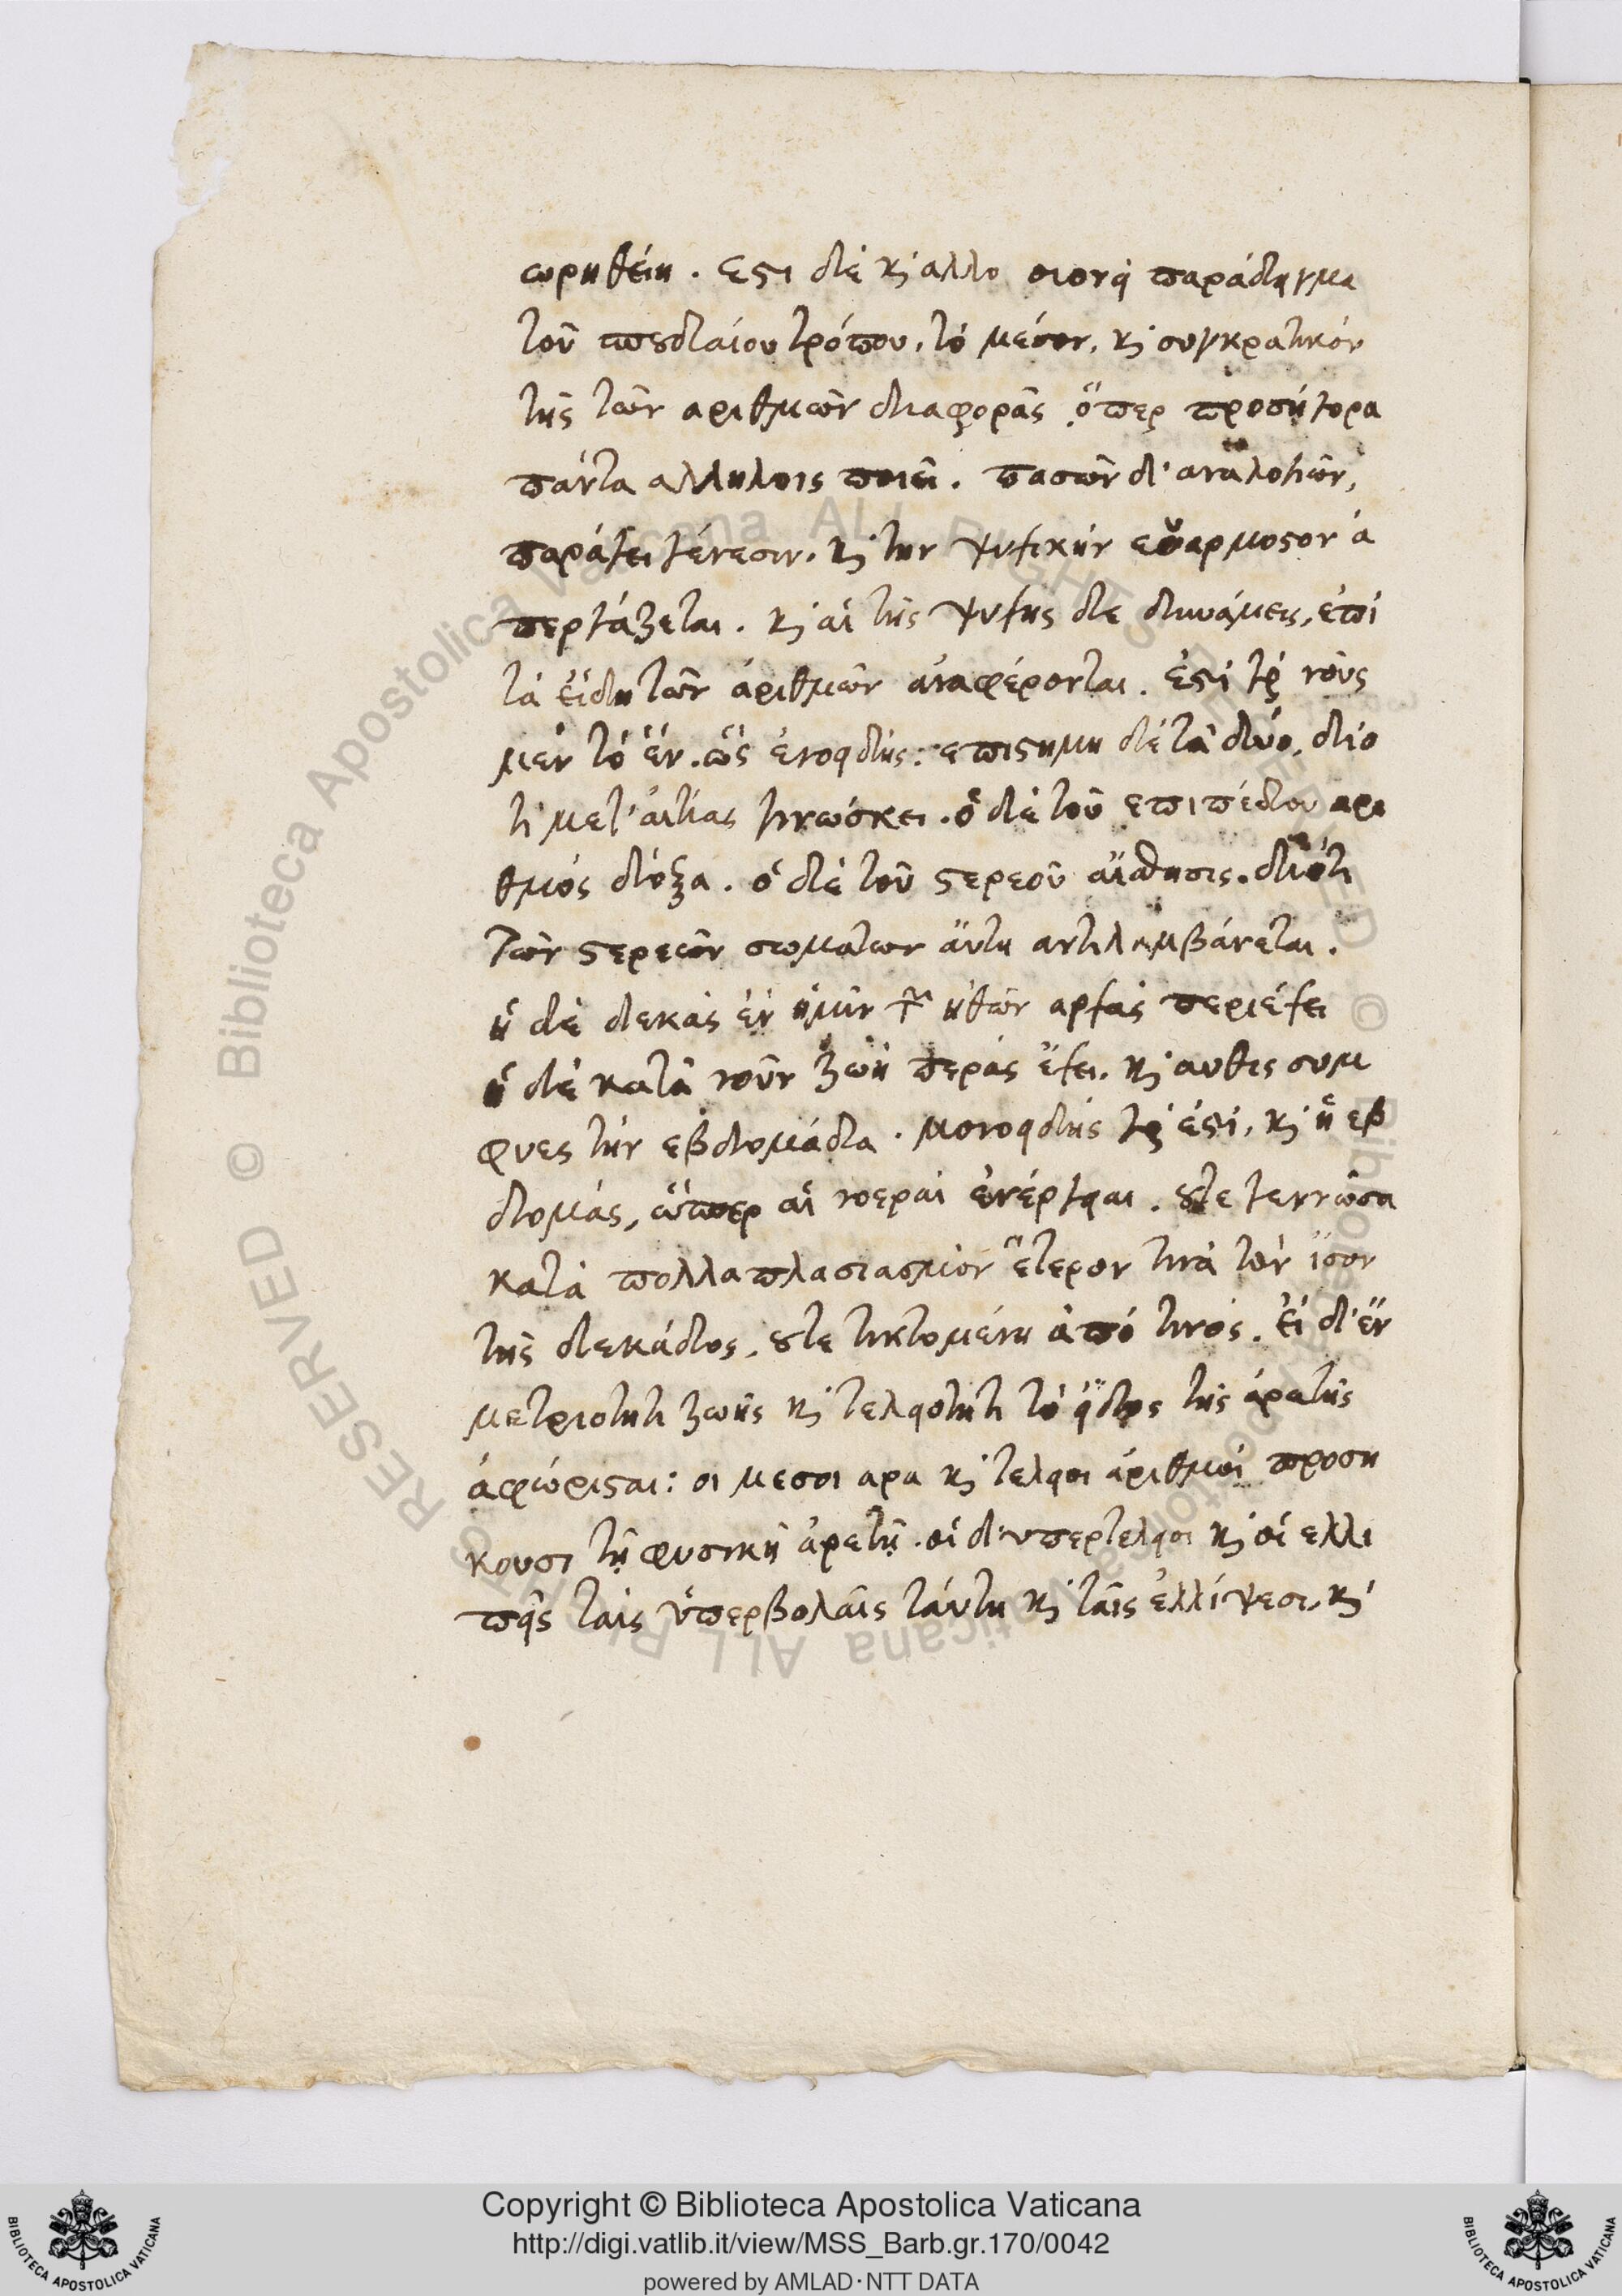 ωρηθείη. ἔστι δὲ κ̀ αλλο οιονεὶ παράδειγμα
τοῦ σπουδαίου τρόπου, τὸ μέσον, κ̀ συγκρατικόν
τῆς τῶν αριθμῶν διαφορᾶς, ὅπερ προσήγορα
πάντα αλλήλοις ποιεῖ. πασῶν δ' αναλογιῶν,
παράγει γένεσιν. κ̀ την ψυχικὴν ευάρμοστον ἀ
περγάζεται. κ̀ αἱ τῆς ψυχῆς δε δυνάμεις, ἐπὶ
τὰ εἴδη τῶν ἀριθμῶν ἀναφέρονται. ἐστὶ γὰρ νοῦς
μὲν τὸ ἕν. ὡς ἑνοειδής: επιστήμη δὲ τὰ δύο, διό
τι μετ' αιτίας γινώσκει. ὁ δὲ τοῦ επιπέδου αρι
θμὸς δόξα. ὁ δὲ τοῦ στερεοῦ αἴσθησις. διότι
τῶν στερεῶν σωμάτων ἅυτη αντιλαμβάνεται.
ἡ δὲ δεκὰς ἐν ἡμῖν τῶν ἠθῶν αρχὰς περιέχει
ἡ δὲ κατὰ νοῦν ζωὴ περὰς ἔχει. κ̀ αυθις συμ
φυες τὴν εβδομάδα. μονοειδὴς γὰρ ἐστὶ, κ̀ ἡ εβ
δομάς, ὥσπερ αἱ νοεραὶ ἐνέργειαι. οὔτε γεννῶσα
κατὰ πολλαπλασιασμὸν ἕτερον τινὰ τῶν ἴσον
τῆς δεκάδος, οὔτε τικτομένη ἀπό τινος. εἰ δ' ἐν
μετριότητι ζωῆς κ̀ τελειότητι τὸ εἶδος τῆς ἀρετῆς
ἀφώρισται: οι μεσοι αρα κ̀ τελειοι ἀριθμοὶ προση
κουσι τῇ φυσικῇ ἀρετῇ. οἱ δ' υπερτελειοι κ̀ οἱ ελλι
πεῖς ταῖς ὑπερβολαῖς ταύτη κ̀ ταῖς ἐλλίψεσι, κ̀
Copyright © Biblioteca Apostolica Vaticana
http://digi.vatlib.it/view/MSS_Barb.gr.170/0042
powered by AMLAD·NTT DATA